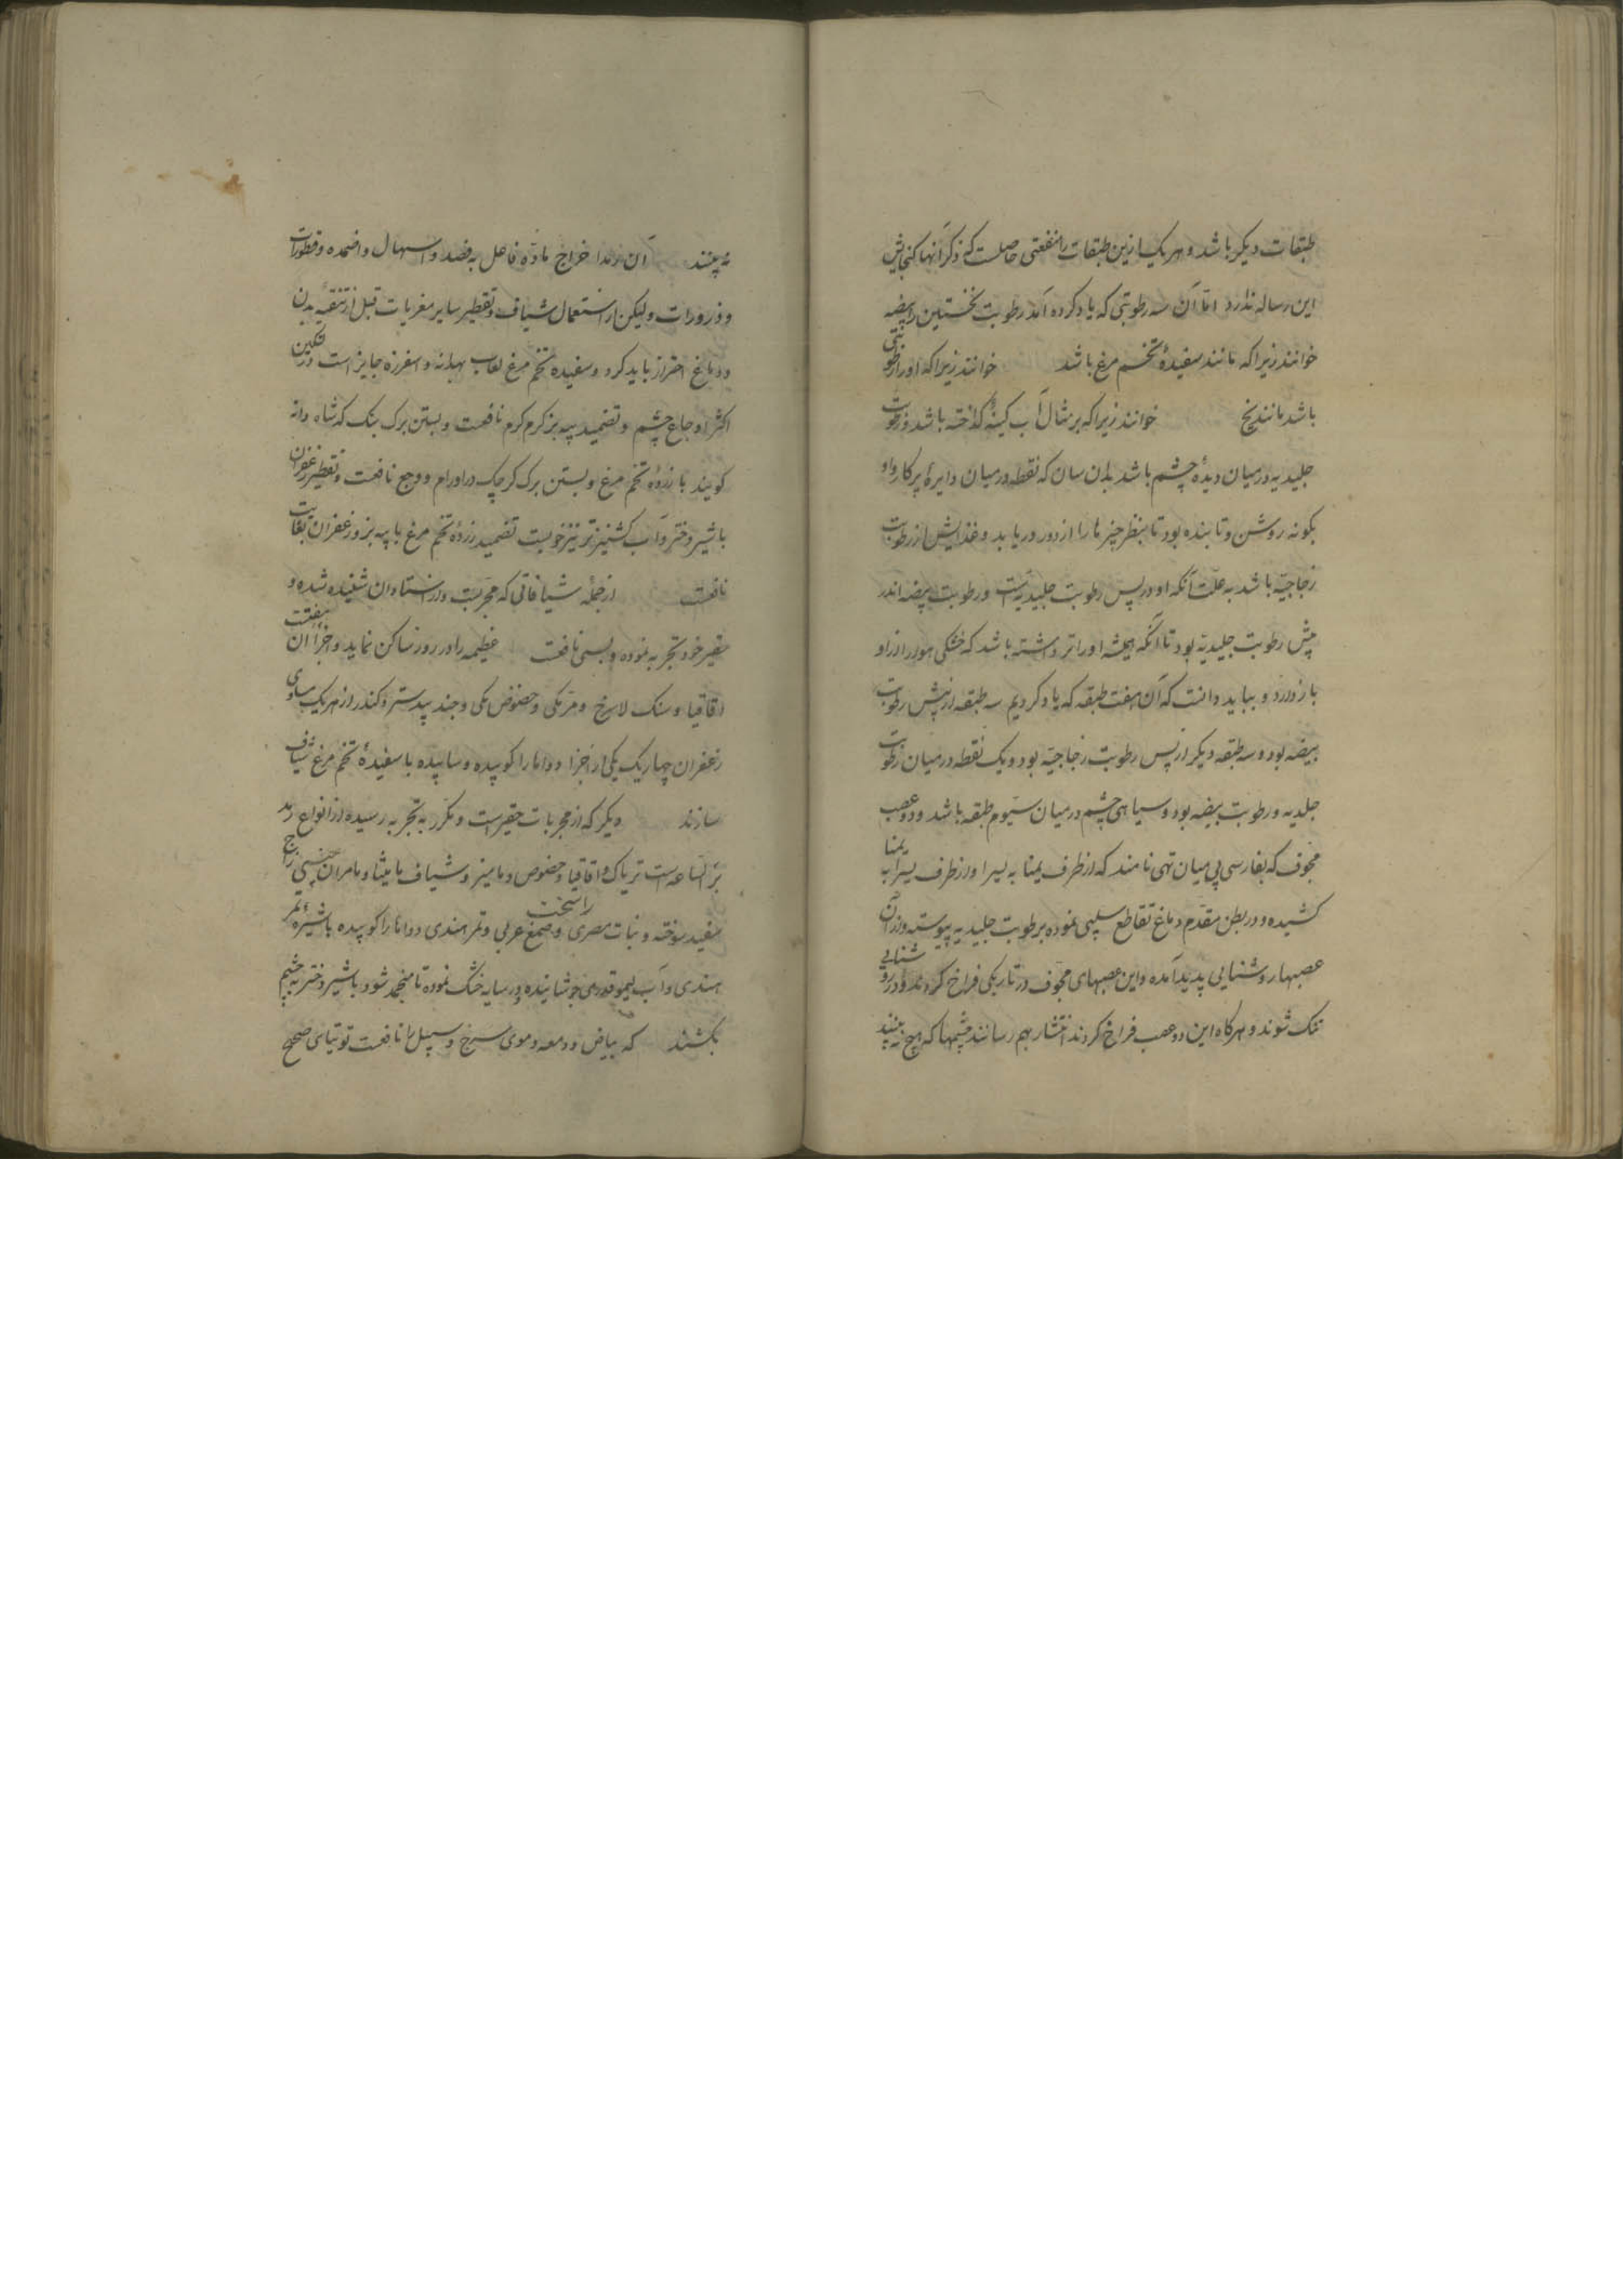 طبقات دیکر باشد و هر یک ازین طبقات را منفعتی حاصلست که ذکر آنها کنجایش
این رساله ندارد اما آن سه رطوبتی که یاد کرده آمد رطوبت نخستین را بیضیه
خوانند زیرا که مانند سفیدهٔ تخم مرغ باشد خوانند زیرا که او را رطوبتی
باشد مانند یخ خوانند زیرا که بر مثال آب کینهٔ کداخته باشد و رطوبت
جلیدیه در میان دیدهٔ چشم باشد بدان سان که نقطه در میان دایرهٔ پرکار و او
بکونه روشن و تابنده بود تا بنظر چیزها را از دور دریابد و غذایش از رطوبت
زجاجیّه باشد به علّت آنکه او در پس رطوبت جلیدیّه است و رطوبت بیضه اندر
پیش رطوبت جلیدیّه بود تا آنکه همیشه او را تر داشته باشد که خشکی هوا را از او
باز دارد و بباید دانست که آن هفت طبقه که یاد کردیم سه طبقه از پیش رطوبت
بیضه بود و سه طبقه دیکر از پس رطوبت زجاجیّه بود و یک نقطه در میان رطوبت
جلدیه و رطوبت بیضه بود و سیاهی چشم در میان سیّوم طبقه باشد و دو عصب
مجوف که بفارسی پی میان تهی نامند که از طرف یمنا به یسرا و از طرف یسرا به یمنا
کشیده و در بطن مقدّم دماغ تقاطع صلیبی نموده برطوبت جلیدیه پیوسته و از آن
عصبها روشنایی پدید آمده و این عصبهای مجوّف در تاریکی فراخ کردند و در روشنایی
تنک شوند و هرکاه این دو عصب فراخ کردند انتشار بهم رسانند چشمها که هیچ نه بینید
نه بینند آن اخراج مادّه فاعل به فصد و اسهال و اضمده و قطورات
و ذرورات و لیکن از استعمال شیاف و تقطیر سایر مغریات قبل از تنقیهٔ بدن
و دماغ احتراز باید کرد و سفیده تخم مرغ لعاب بهدانه و اسفرزه جایز است در تسکین
اکثر اوجاع چشم و تضمید پیه بز کرم کرم نافعست و بستن برک بنک که شاه دانه
کویند با زردهٔ تخم مرغ و بستن برک کرچک در اورام و وجع نافعست و تقطیر زعفران
با شیر دختر و آب کشنیز تر نیز خوبست تضمید زردهٔ تخم مرغ با پیه بز و زعفران بغایت
نافعست از جمله شیافاتی که مجربست و از استادان شنیده شده و
حقیر خود تجربه نموده و بسی نافعست عظیمه را در روز ساکن نماید و اجزا آن هفتست
اقاقیا و سنک لاسرخ و مر مکی و حضض مکی و جند بیدستر و کندر از هر یک مساوی
زعفران چهار یک یکی از اجزا دواها را کوبیده و سابیده با سفیدهٔ تخم مرغ شیاف
سازند دیکر که از مجربات حقیر است و مکرر به تجربه رسیده از انواع رمد
برّ السّاعه است تریاک و اقاقیا و حضوض و مامیز و شیاف مامیثا و مامران چینی زاج
سفید سوخته و نبات مصری راسخت و صمغ عربی و تمر هندی دواها را کوبیده با شیرهٔ تمر
هندی و آب لیمو قدری جوشانیده و در سایه خشک نموده تا منجمد شود با شیر دختر به چشم
بکشند که بیاض و دمعه و موی سرخ و سبل را نافعست توتیای صحیح